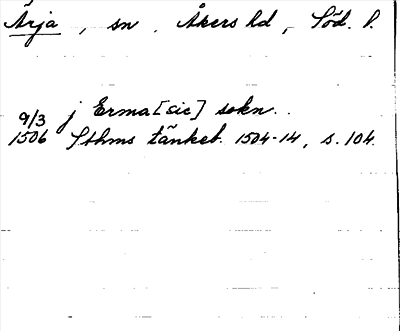 Ärja, sn. Åkers hd, Söd. l.
9/3 j Erma [sic] sokn.
1506 Sthms tänkeb. 1504-14, s. 104.